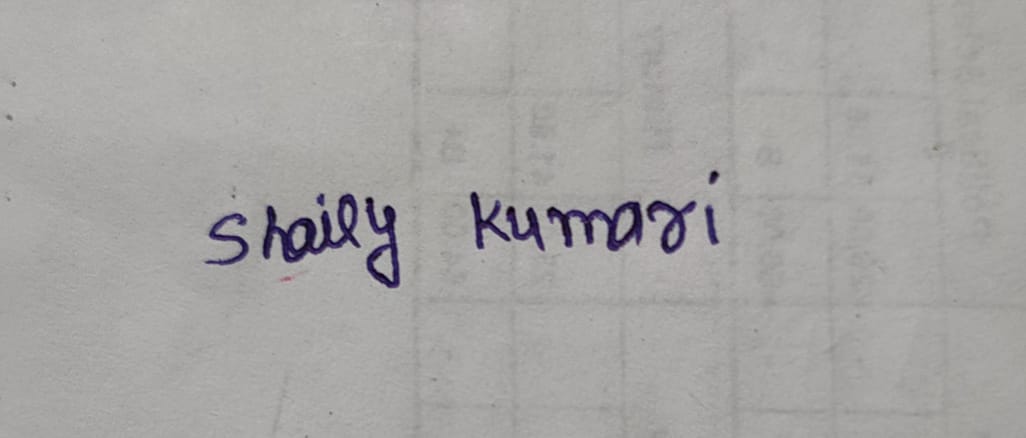 Shaily Kumari